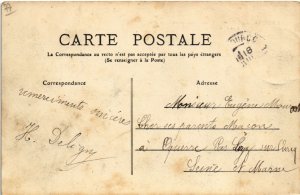 CARTE POSTALE
La Correspondance au verso n'est pas acceptée par tous les pays étrangers
(Se renseigner à la Poste)
Correspondance
Adresse
remerciments sincères
H. Deligny
Monsieur Eugène
Cher ses parents Maçon
à par Lizy sur Ourcq
Seine et Marne